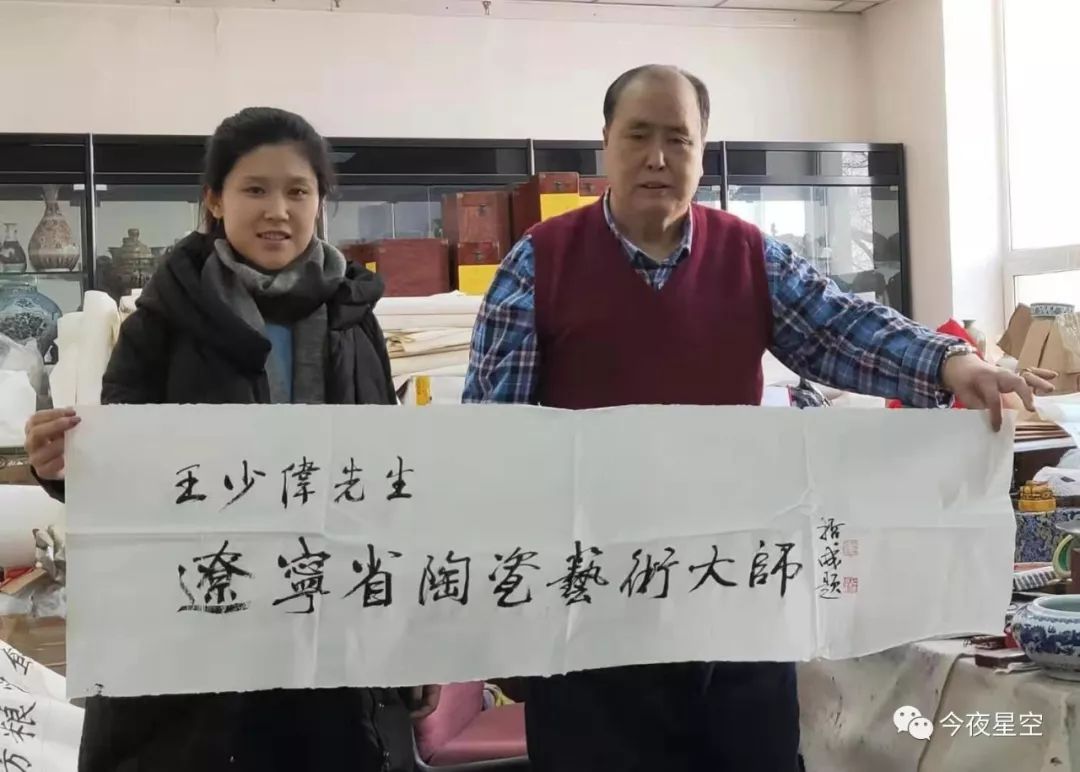 王少偉先生
遼寧省陶瓷藝術大師
哲成題
方粮
今夜星空